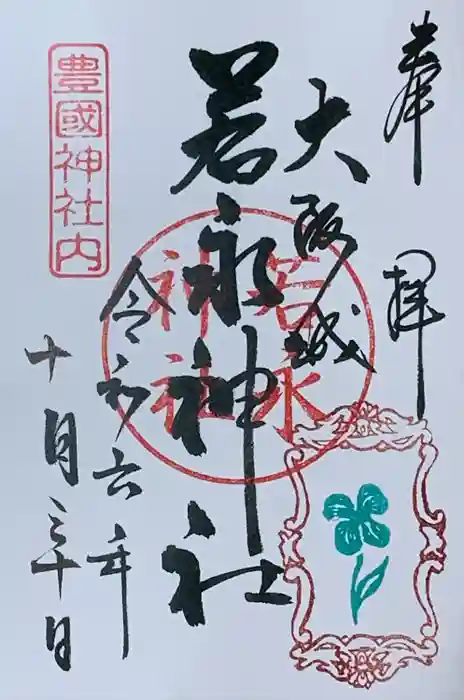 奉拝
大阪城
若永神社
若永神社
令和六年
十月三十日
豊國神社内